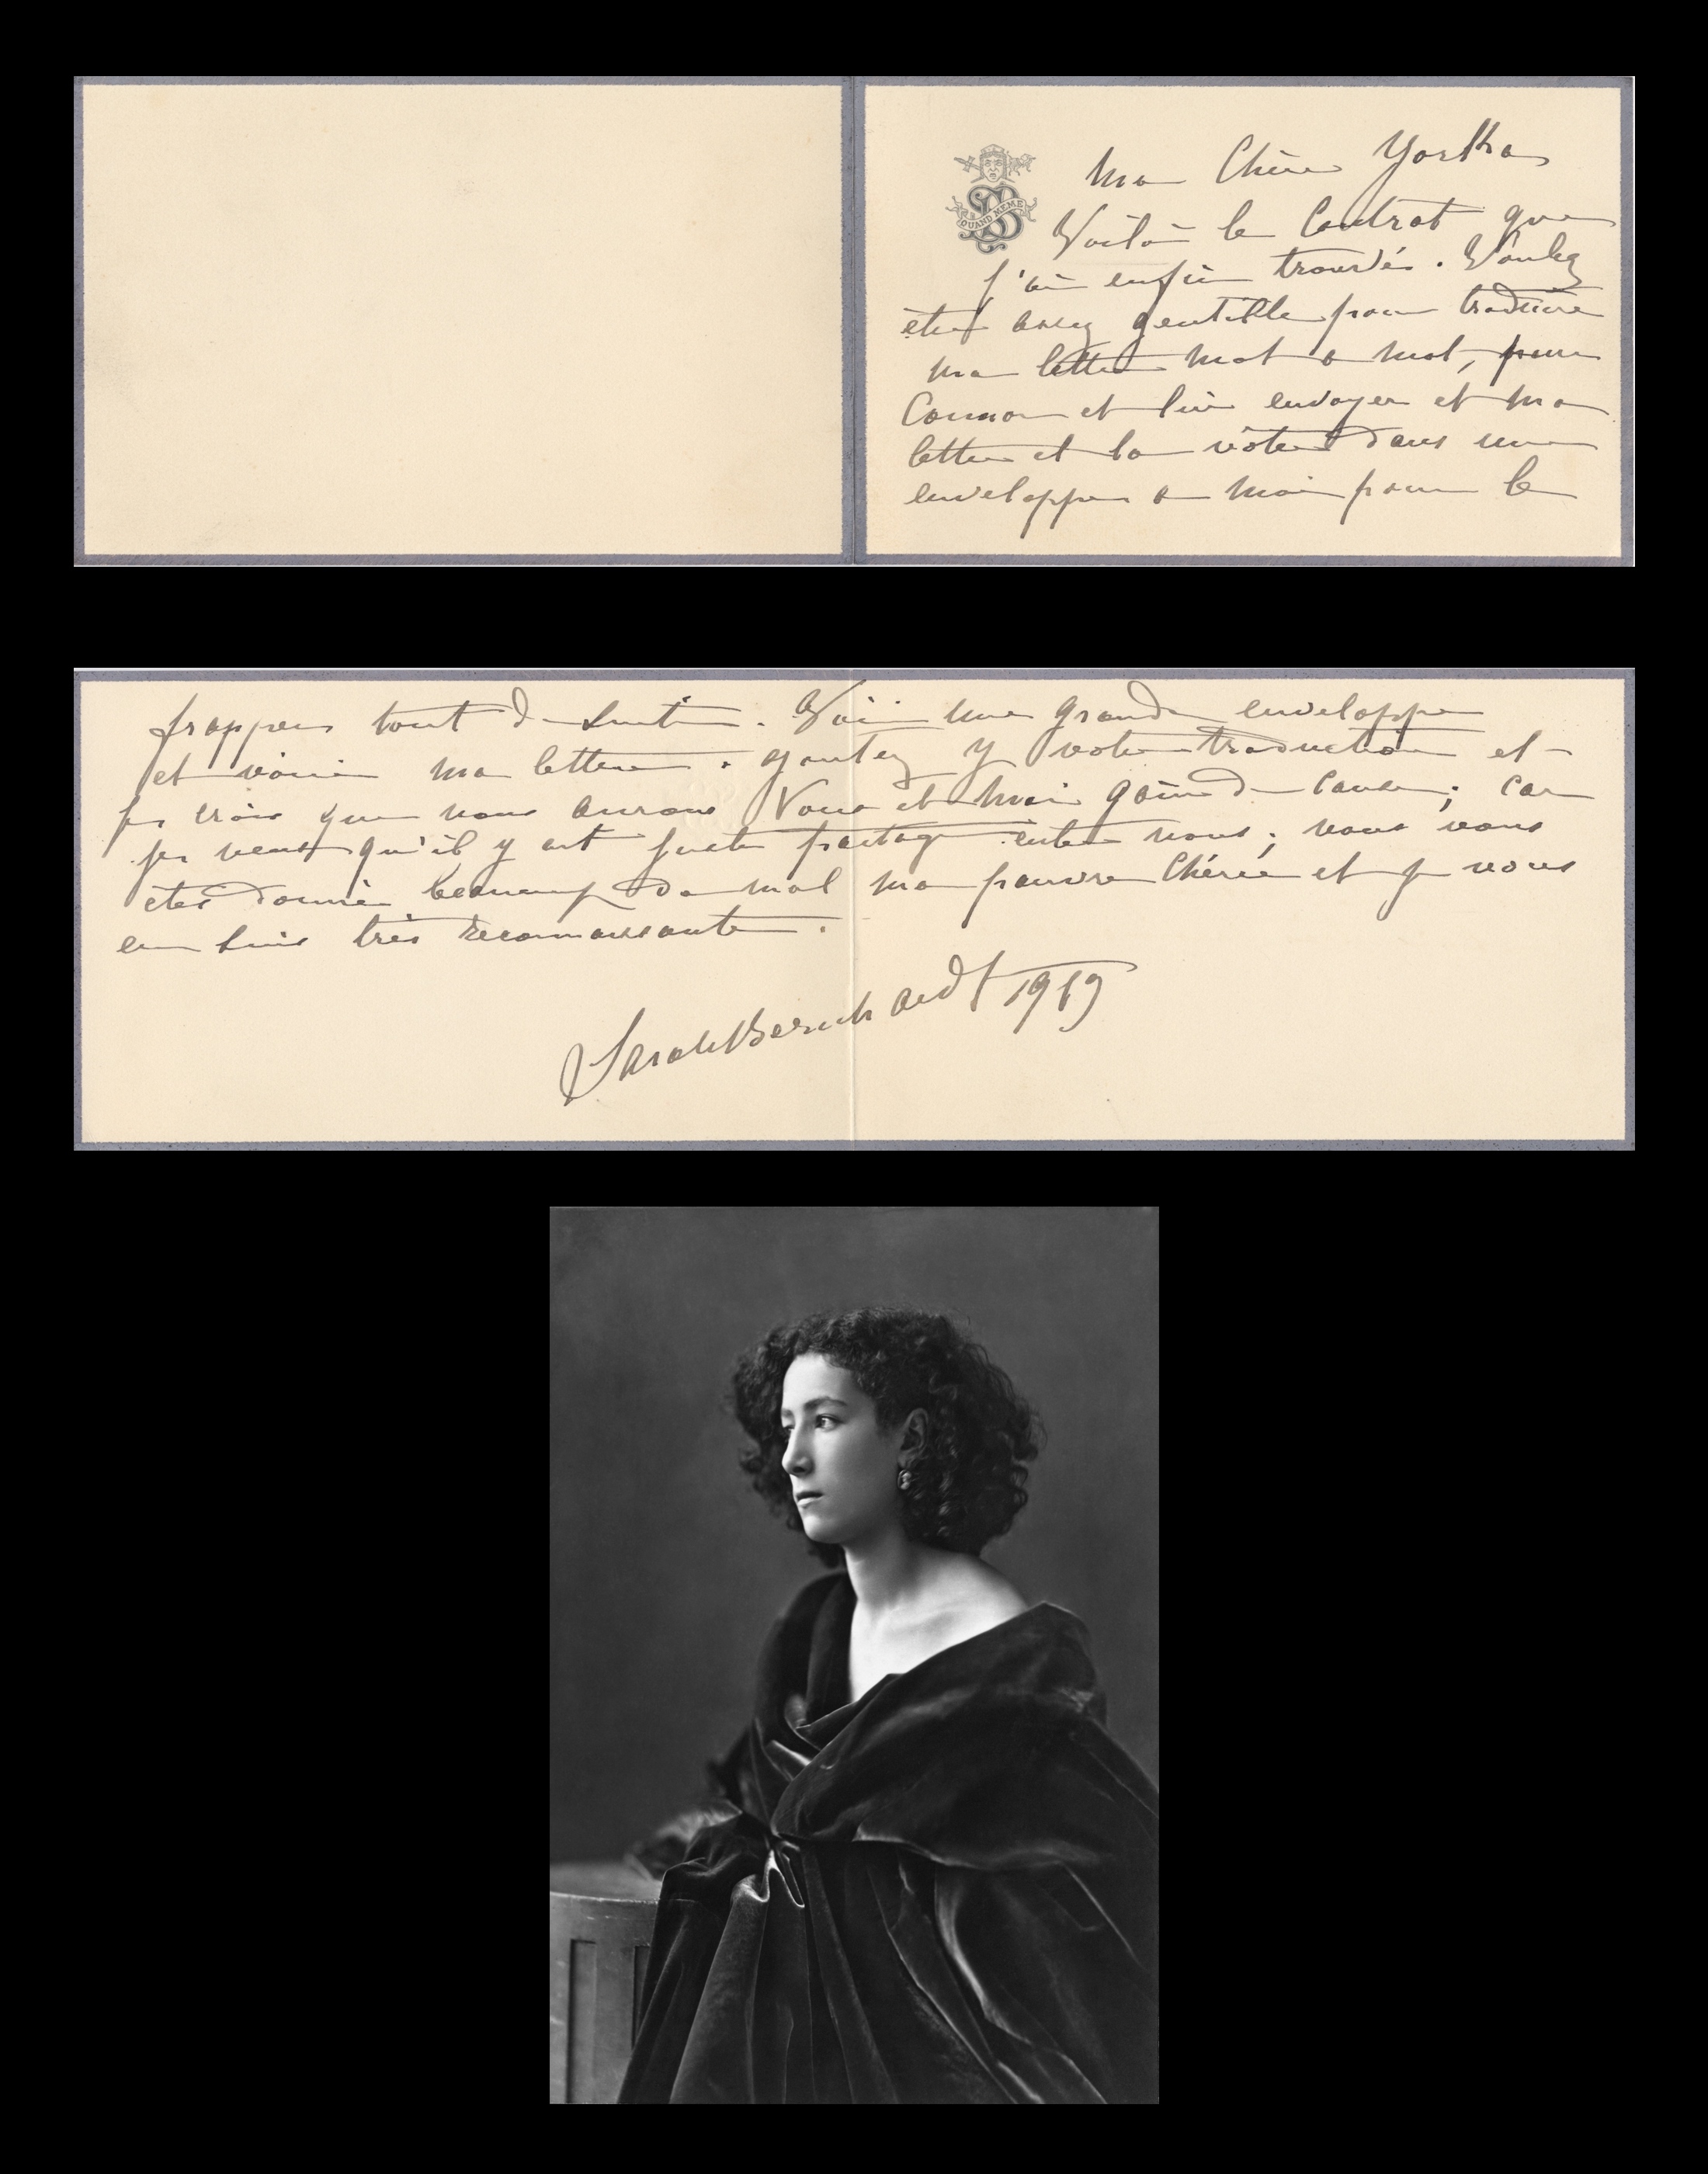 QUAND MEME
Ma Chère Yorska
Voilà le Contrat que
j'ai enfin trouvé. Voulez
être assez gentille pour traduire
ma lettre mot a mot, pour
Connor et lui envoyer et ma
lettre et la vôtre dans une
enveloppe a moi pour le
frapper tout de suite. Voici une grande enveloppe
et voici ma lettre. ajoutez y votre traduction et
je crois que nous aurons Vous et moi gain de cause; car
je veux qu'il y ait juste partage entre nous; vous vous
etes donnée beaucoup de mal ma pauvre Chérie et je vous
en suis très reconnaissante.
Sarah Bernhardt 1919